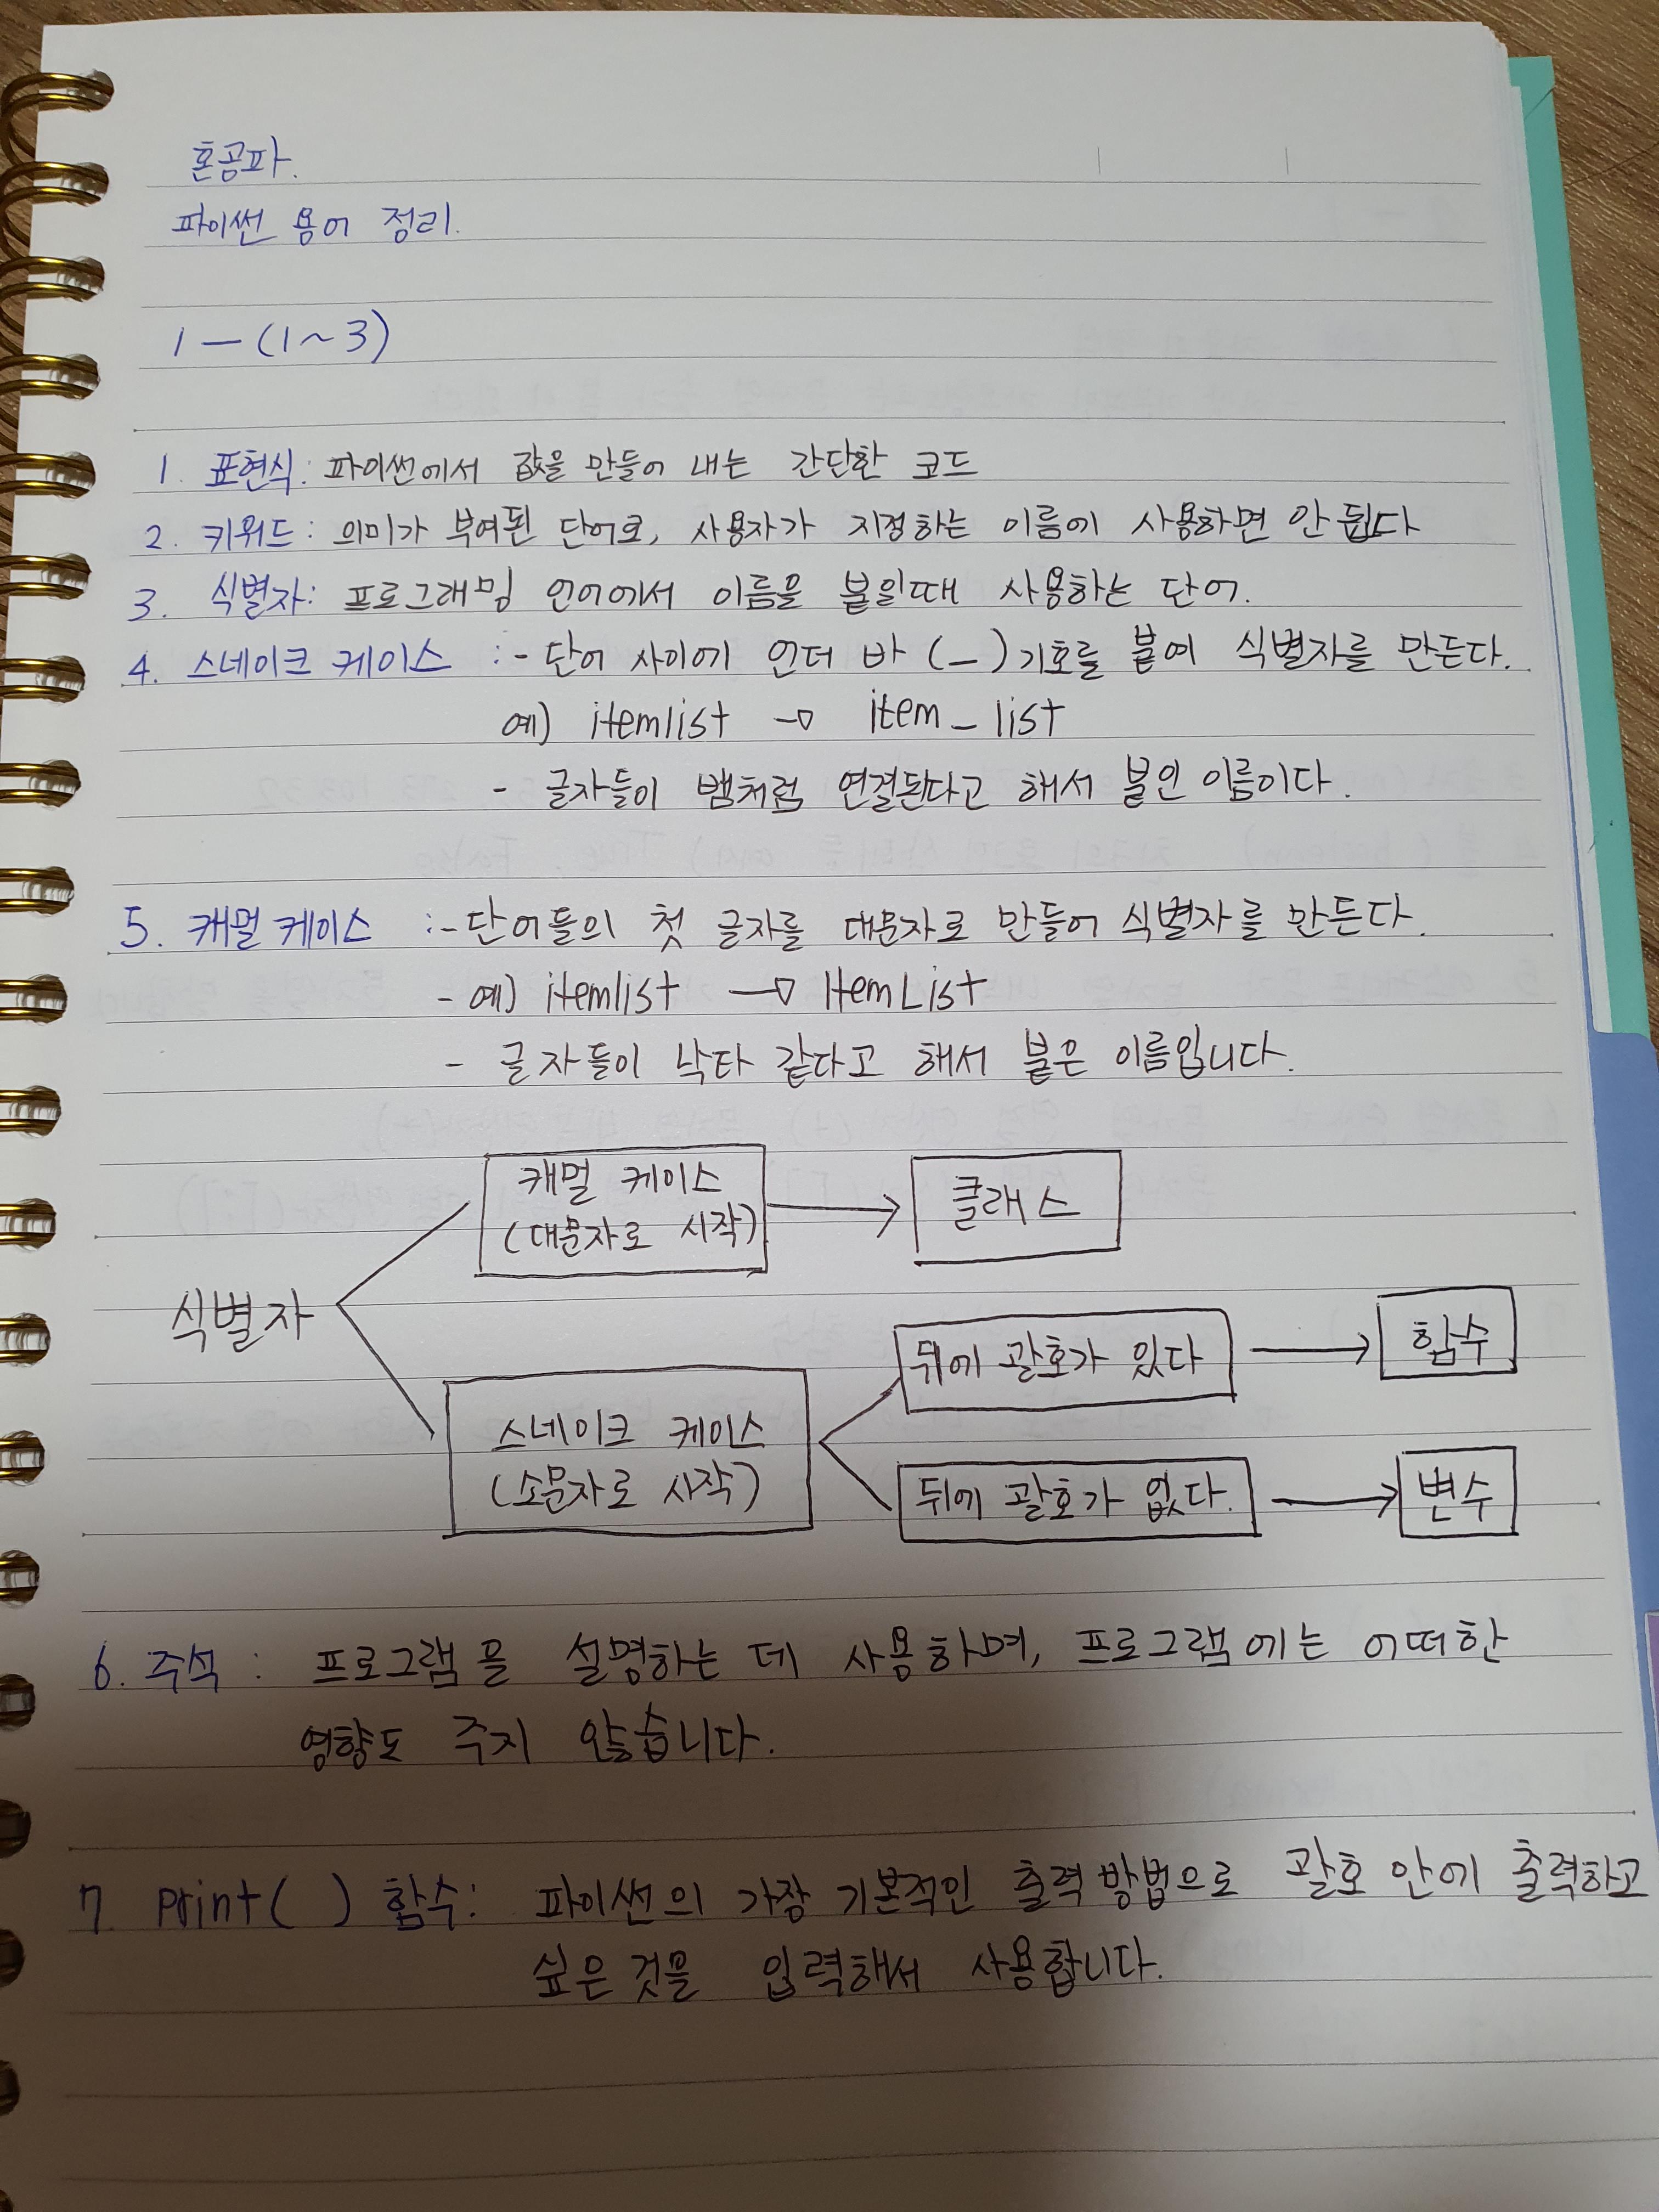 혼공파.
파이썬 용어 정리.
1 - (1~3)
1. 표현식: 파이썬에서 값을 만들어 내는 간단한 코드
2. 키워드: 의미가 부여된 단어로, 사용자가 지정하는 이름에 사용하면 안 됩니다
3. 식별자: 프로그래밍 언어에서 이름을 붙일때 사용하는 단어.
4. 스네이크 케이스 :- 단어 사이에 언더 바 (_) 기호를 붙여 식별자를 만든다.
예) itemlist → item_list
- 글자들이 뱀처럼 연결된다고 해서 붙인 이름이다.
5. 캐멀 케이스 :- 단어들의 첫 글자를 대문자로 만들어 식별자를 만든다.
- 예) itemlist → ItemList
- 글자들이 낙타 같다고 해서 붙은 이름입니다.
캐멀 케이스 클래스
(대문자로 시작)
식별자
뒤에 괄호가 있다 → 함수
스네이크 케이스
(소문자로 시작)
뒤에 괄호가 없다. → 변수
6. 주석 : 프로그램을 설명하는 데 사용하며, 프로그램에는 어떠한
영향도 주지 않습니다.
7. Print( ) 함수: 파이썬의 가장 기본적인 출력 방법으로 괄호 안에 출력하고
싶은 것을 입력해서 사용합니다.